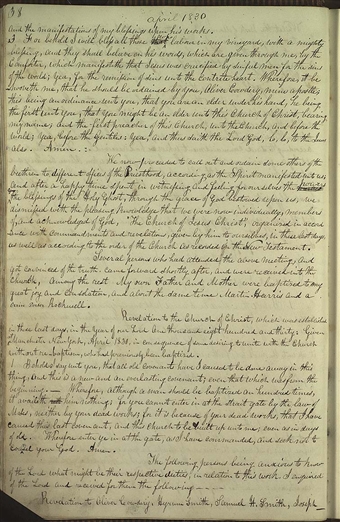 38
April 1830
and the manifestations of my blessings upon his works.
3 For behold I will bless all those that labour in my vineyard, with a mighty
blessing, and they shall believe on his words, which are given through me, by the
Comforter, which manifesteth that Jesus was crucified by sinful men for the sins
of the world; yea, for the remission of sins unto the contrite heart. Wherefore, it be
hooveth me, that he should be ordained by you, Oliver Cowdery, mine apostle;
this being an ordinance unto you, that you are an elder under his hand, he being
the first unto you, that you might be an elder unto this Church of Christ, bearing
my name; and the first preacher of this Church, unto the Church, and before the
world; yea, before the Gentiles: yea, and thus saith the Lord God, lo, lo, to the Jews
also. Amen.
We now proceeded to call out and ordain some others of the
brethren to different offices of the Priesthood, according as the Spirit manifested unto us;
and after a happy time spent in witnessing and feeling for ourselves the powers
the blessings of the Holy Ghost, through the grace of God bestowed upon us, we
dismissed with the pleasing knowledge that we were now individually, members
of, and acknowledged of God, "The Church of Jesus Christ", organized in accord
ance with commandments and revelations, given by him to ourselves, in these last days,
as well as according to the order of the Church as recorded in the New Testament.
Several persons who had attended the above meeting, and
got convinced of the truth, came forward shortly after, and were received into the
Church, Among the rest My own Father and Mother were baptized to my
great joy and consolation, and about the same time Martin Harris and a
Rockwell.
Revelation to the Church of Christ, which was established
in these last days, in the year of our Lord One thousand eight hundred and thirty; Given
Manchester New York, April 1830, in consequence of some desiring to unite with the Church
without re-baptism, who had previously been baptized.
Behold I say unto you, that all old covenants have I caused to be done away in this
thing, And this is a new and an everlasting covenant; even that which was from the
beginning. Wherefore, although a man should be baptized an hundred times,
it availeth him nothing; for you cannot enter in at the strait gate by the law of
Moses, neither by your dead works; for it is because of your dead works, that I have
caused this last covenant, and this church to be built up unto me; even as in days
of old. Wherefore enter ye in at the gate, as I have commanded, and seek not to
counsel your God. Amen.
The following persons being anxious to know
of the Lord what might be their respective duties, in relation to this work, I enquired
of the Lord and received for them the following
Revelation to Oliver Cowdery, Hyrum Smith, Samuel H. Smith, Joseph